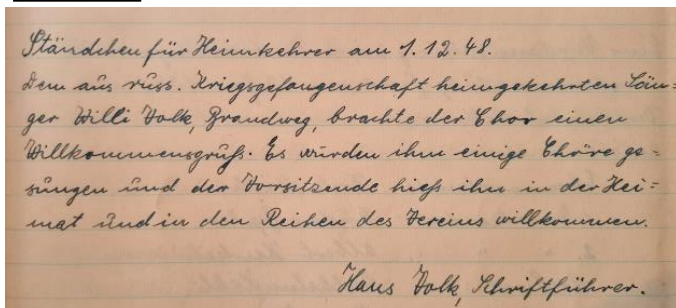 Ständchen für Heimkehrer am 1.12.48.
Dem aus russ. Kriegsgefangenschaft heimgekehrten Sän=
ger Willi Volk, Brandweg, brachte der Chor einen
Willkommensgruß. Es wurden ihm einige Chöre ge=
sungen und der Vorsitzende hieß ihn in der Hei=
mat und in den Reihen des Vereins willkommen.
Hans Volk, Schriftführer.